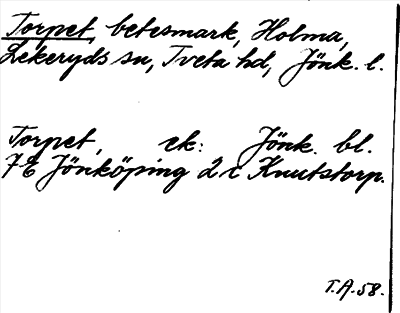 Torpet, betesmark, Holma,
Lekeryds sn, Tveta hd, Jönk. l.
Torpet, ek: Jönk. bl.
7E Jönköping 2 c Knutstorp.
T.A.58.